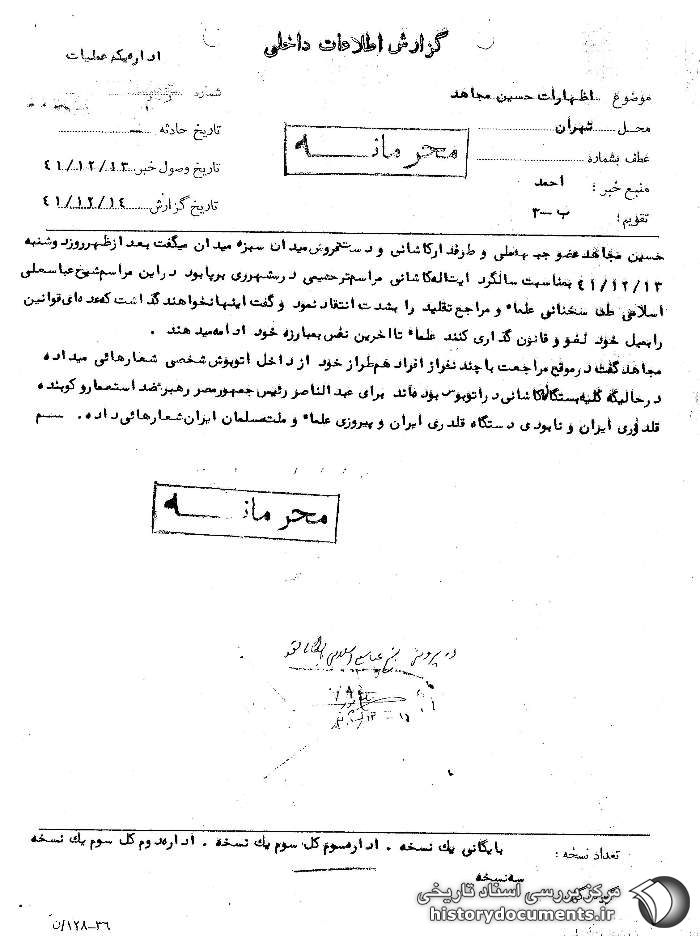 گزارش اطلاعات داخلی
اداره یکم عملیات
موضوع اظهارات حسین مجاهد
محل تهران
عطف بشماره
منبع خبر: احمد
تقویم: ب-۳
شماره
تاریخ حادثه
تاریخ وصول خبر ۴۱/۱۲/۱۳
تاریخ گزارش ۴۱/۱۲/۱۴
محرمانه
حسین مجاهد عضو جبهه ملی و طرفدار کاشانی و دستفروش میدان سبزه میدان میگفت بعد از ظهر روز دوشنبه
۴۱/۱۲/۱۳ بمناسبت سالگرد ایت اله کاشانی مراسم ترحیمی در مسشهرری برپا بود در این مراسم شیخ عباسعلی
اسلامی طی سخنانی علماء و مراجع تقلید را بشدت انتقاد نمود و گفت اینها نخواهند گذاشت که عده ای قوانین
را بمیل خود لغو و قانون گذاری کنند علماء تا اخرین نفس بمبارزه خود ادامه میدهند.
مجاهد گفت در موقع مراجعت با چند نفر از افراد هم طراز خود از داخل اتوبوس شخصی شعارهائی میداده
در حالیکه کلیه بستگان کاشانی در اتوبوس بوده اند برای عبدالناصر رئیس جمهور مصر رهبر ضد استعمار و کوبنده
قلدوری ایران و نابودی دستگاه قلدری ایران و پیروزی علماء و ملت مسلمان ایران شعارهائی داده.
محرمانه
در پرونده شیخ عباسعلی اسلامی بایگانی شود
تعداد نسخه: بایگانی یك نسخه . اداره سوم کل سوم یك نسخه . اداره دوم کل سوم یك نسخه
سه نسخه
مرکز بررسی اسناد تاریخی
historydocuments.ir
۳۶-۱۲۸/ن